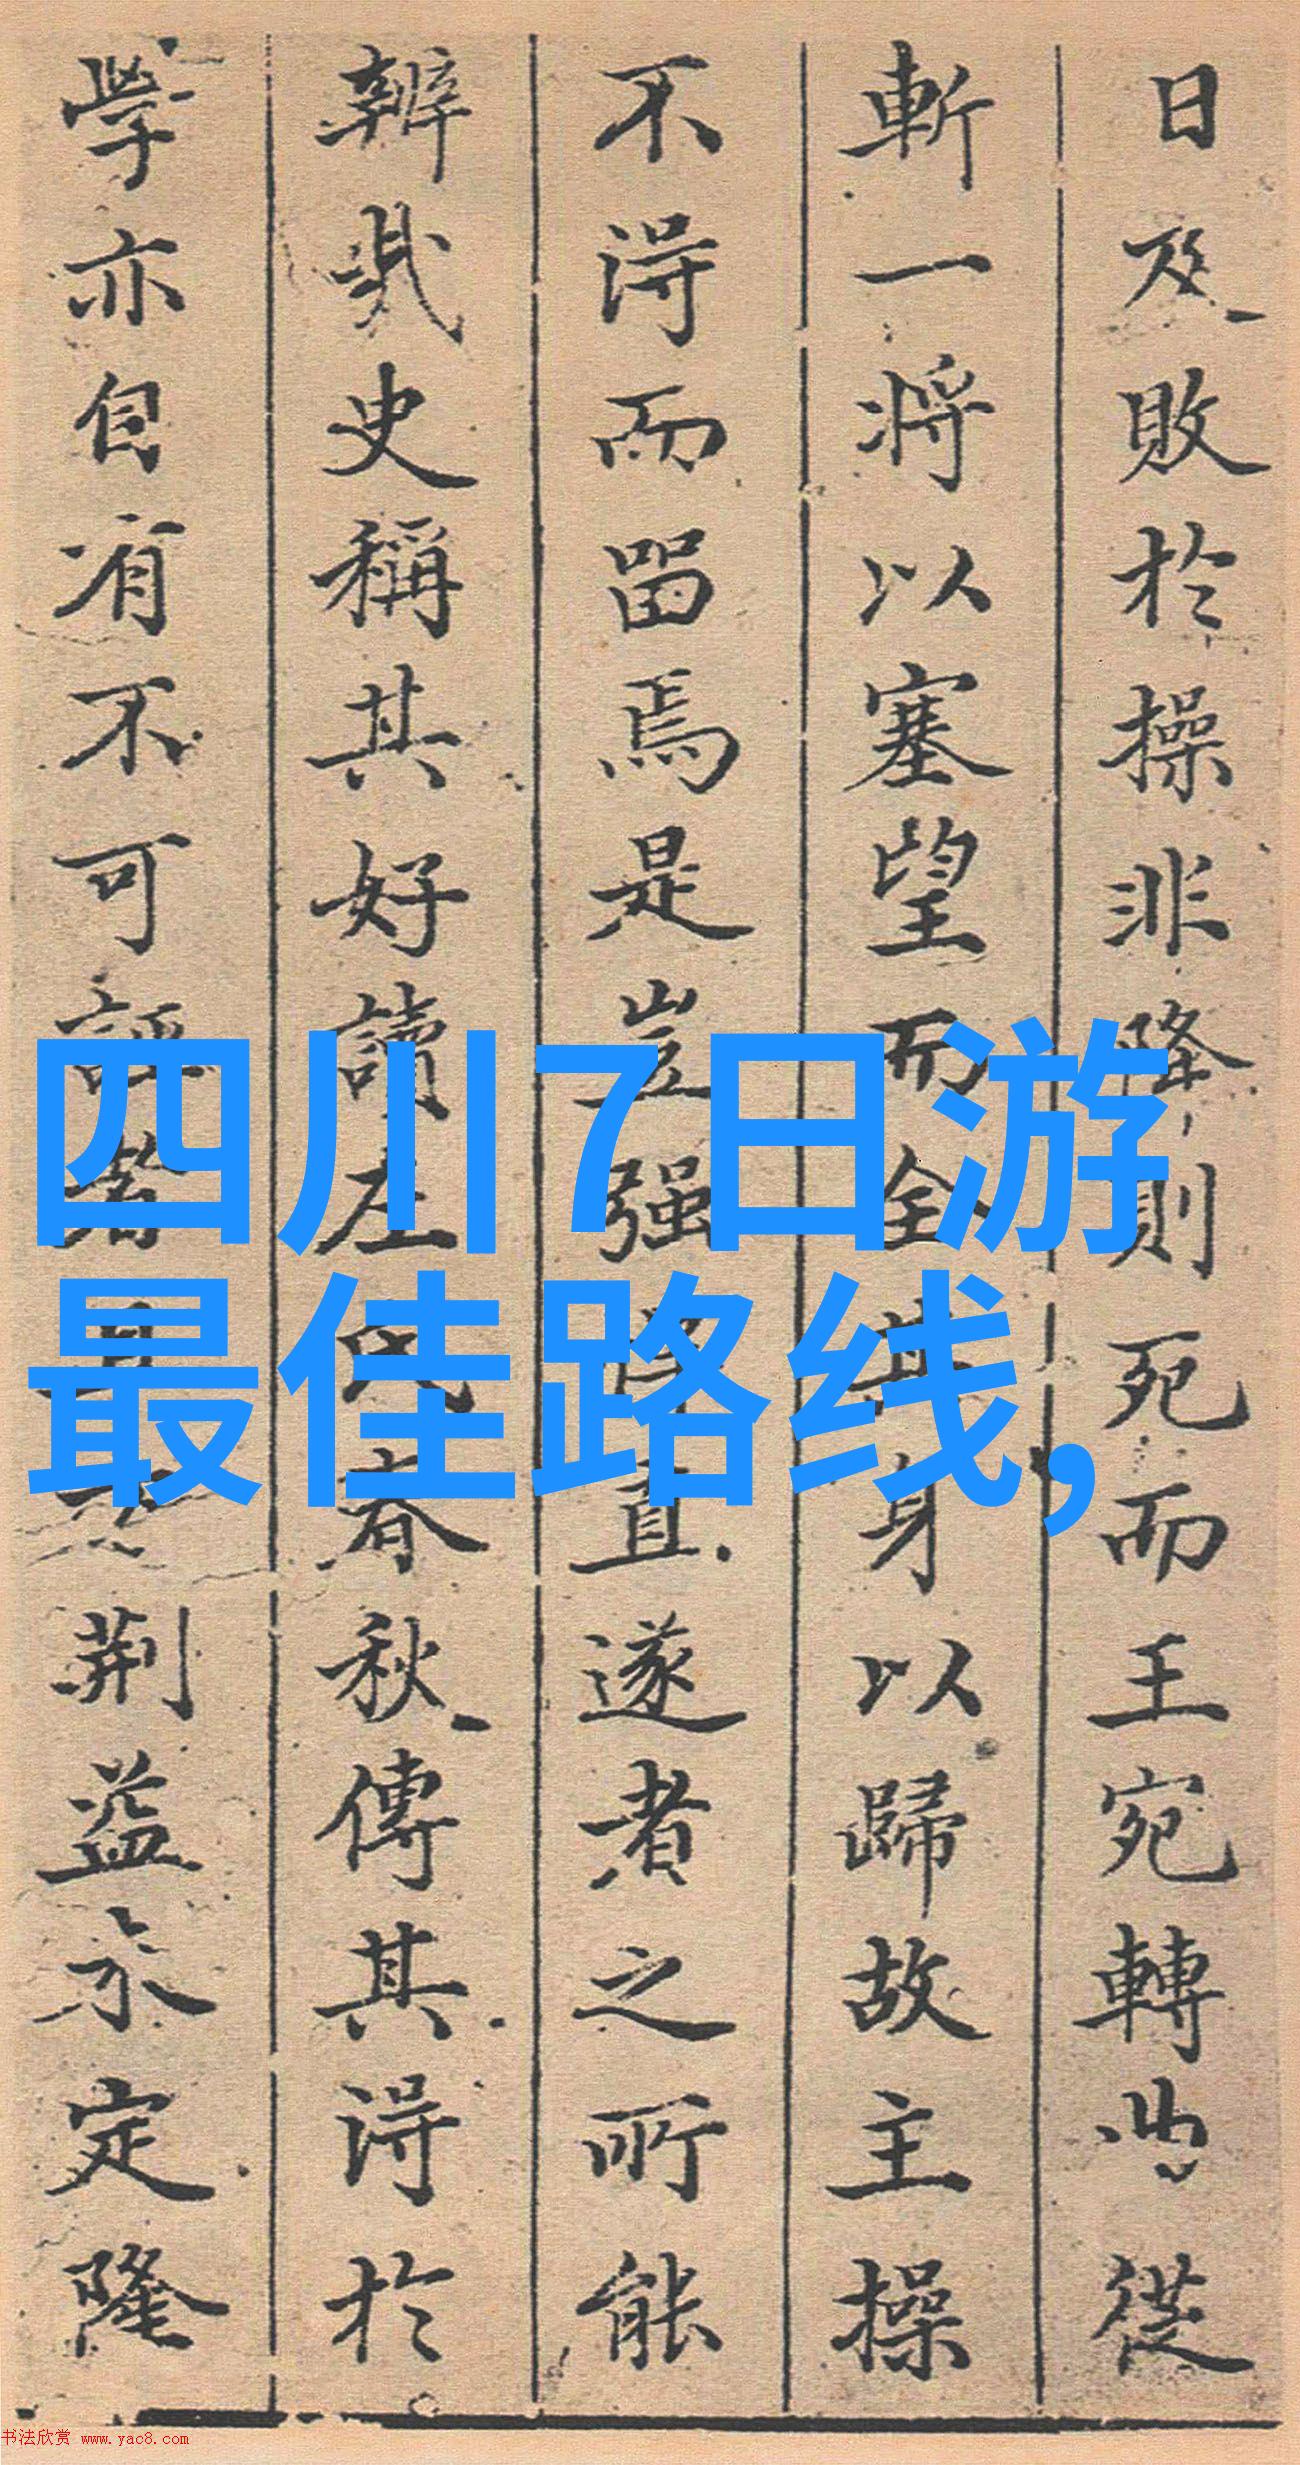 日及敗於操非降則死而王宛轉曲從
斬一将以塞望而全其身以歸故主操
不得而留焉是豈强 直遂者之所能
辨哉史稱其好讀左氏春秋傳其得於
學亦自有不可誣者 荆益未定隆
四川7日游
最佳路线,
书法欣赏 www.yac8.com